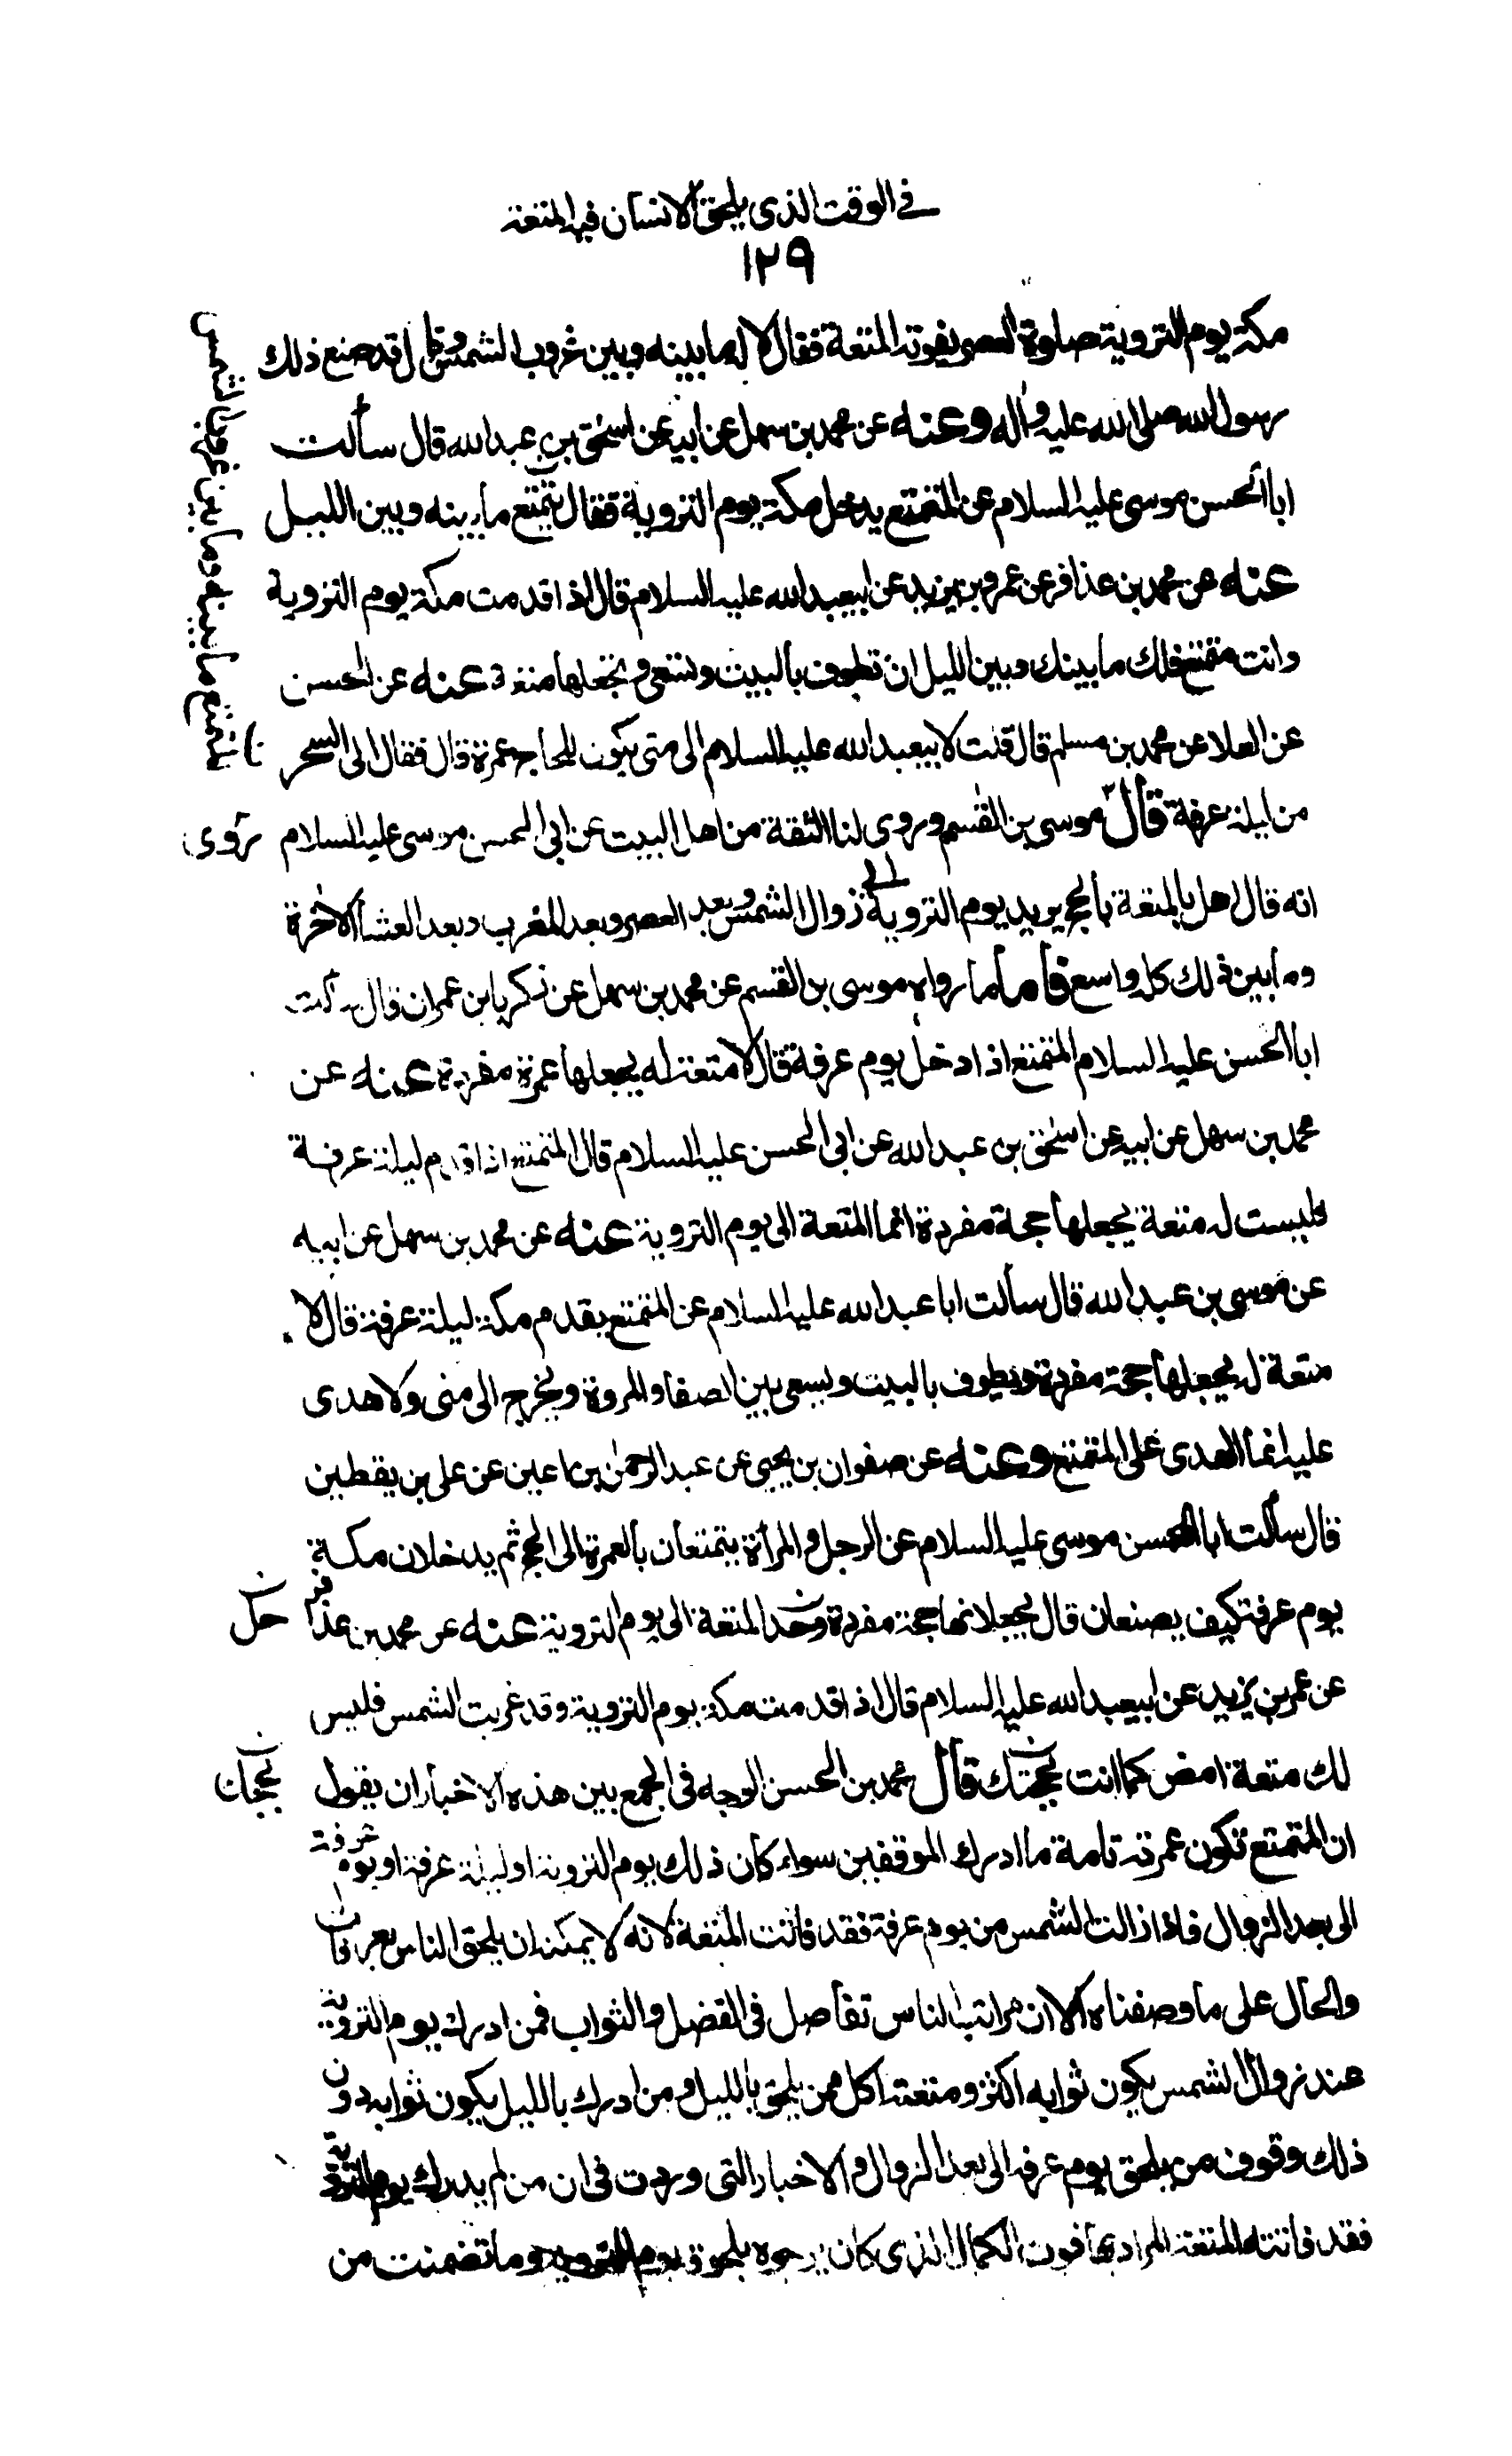 في الوقت الذي يلحق الانسان فيه المتعة
١٢٩
مكة يوم التروية صلوة العصر تفوته المتعة فقال لا له ما بينه وبين غروب الشمس وقال قد صنع ذلك
رسول الله صلى الله عليه واله وعنه عن محمد بن سهل عن ابيه عن اسحق بن عبد الله قال سألت
ابا الحسن موسى عليه السلام عن المتمتع يدخل مكة يوم التروية فقال يتمتع ما بينه وبين الليل
عنه عن محمد بن عذافر عن عمر بن يزيد عن ابيعبد الله عليه السلام قال اذا قدمت مكة يوم التروية
وانت متمتع فلك ما بينك وبين الليل ان تطوف بالبيت وتسعى وتجعلها متعة عنه عن الحسن
عن العلا عن محمد بن مسلم قال قلت لابيعبد الله عليه السلام الى متى يكون للحاج عمرة قال فقال الى السحر
من ليلة عرفة قال موسى بن القسم وروى لنا الثقة من اهل البيت عن ابى الحسن موسى عليه السلام
انه قال اهل بالمتعة بالحج يريد يوم التروية الى زوال الشمس وبعد العصر وبعد المغرب وبعد العشاء الاخرة
وما بين ذلك كله واسع فأما ما رواه موسى بن القسم عن محمد بن سهل عن زكريا بن عمران قال سألت
ابا الحسن عليه السلام المتمتع اذا دخل يوم عرفة قال لا متعة له يجعلها عمرة مفردة عنه عن
محمد بن سهل عن ابيه عن اسحق بن عبد الله عن ابى الحسن عليه السلام قال المتمتع اذا قدم ليلة عرفة
فليست له متعة يجعلها حجة مفردة انما المتعة الى يوم التروية عنه عن محمد بن سهل عن ابيه
عن موسى بن عبد الله قال سألت ابا عبد الله عليه السلام عن المتمتع يقدم مكة ليلة عرفة قال لا
متعة له يجعلها حجة مفردة ويطوف بالبيت ويسعى بين الصفا والمروة ويخرج الى منى ولا هدى
عليه انما الهدى على المتمتع وعنه عن صفوان بن يحيى عن عبد الرحمن بن اعين عن على بن يقطين
قال سألت ابا الحسن موسى عليه السلام عن الرجل والمرأة يتمتعان بالعمرة الى الحج ثم يدخلان مكة
يوم عرفة كيف يصنعان قال يجعلانها حجة مفردة وحد المتعة الى يوم التروية عنه عن محمد بن عذافر
عن عمر بن يزيد عن ابيعبد الله عليه السلام قال اذا قدمت مكة يوم التروية وقد غربت الشمس فليس
لك متعة امض كما انت بحجتك قال محمد بن الحسن الوجه في الجمع بين هذه الاخبار ان يقول
ان المتمتع تكون عمرته تامة ما ادرك الموقفين سواء كان ذلك يوم التروية او ليلة عرفة او يوم عرفة
الى بعد الزوال فاذا زالت الشمس من يوم عرفة فقد فاتت المتعة لانه لا يمكنه ان يلحق الناس بعرفات
والحال على ما وصفناه الا ان مراتب الناس تفاضل في الفضل والثواب فمن ادرك يوم التروية
عند زوال الشمس يكون ثوابه اكثر ومتعته اكمل ممن يلحق بالليل ومن ادرك بالليل يكون ثوابه دون
ذلك وفوق من يلحق يوم عرفة الى بعد الزوال والاخبار التى وردت في ان من لم يدرك يوم التروية
فقد فاتته المتعة المراد بها فوت الكمال الذى كان يرجوه بلحوق يوم التروية وما تضمنت من
للمتمتع ما بينه وما بين غروب الشمس
روى
حل
بحجك